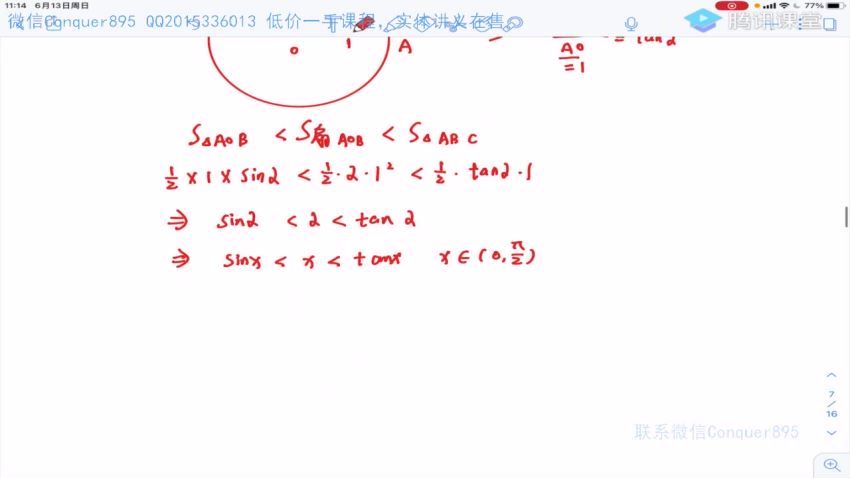 11:14 6月13日周日
77%
微信Conquer895 QQ2015336013 低价一手课程，实体讲义在售。
腾讯课堂
0 1 A
= A0 = tan2
= 1
S△AOB < S扇AOB < S△ABC
1/2 × 1 × sin2 < 1/2 · 2 · 1² < 1/2 · tan2 · 1
⇒ sin2 < 2 < tan2
⇒ sinx < x < tanx x ∈ (0, π/2)
7
/
16
联系微信Conquer895